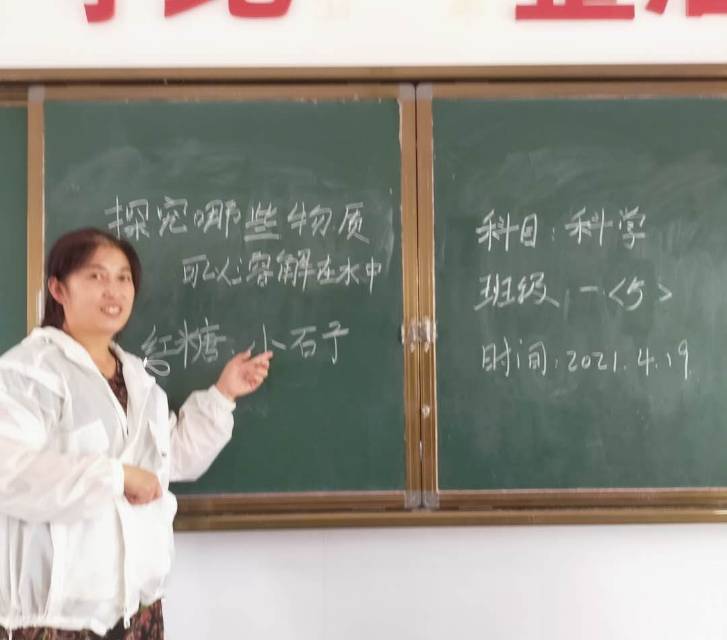 探究哪些物质
可以溶解在水中
红糖、小石子
科目:科学
班级 一<5>
时间:2021.4.19